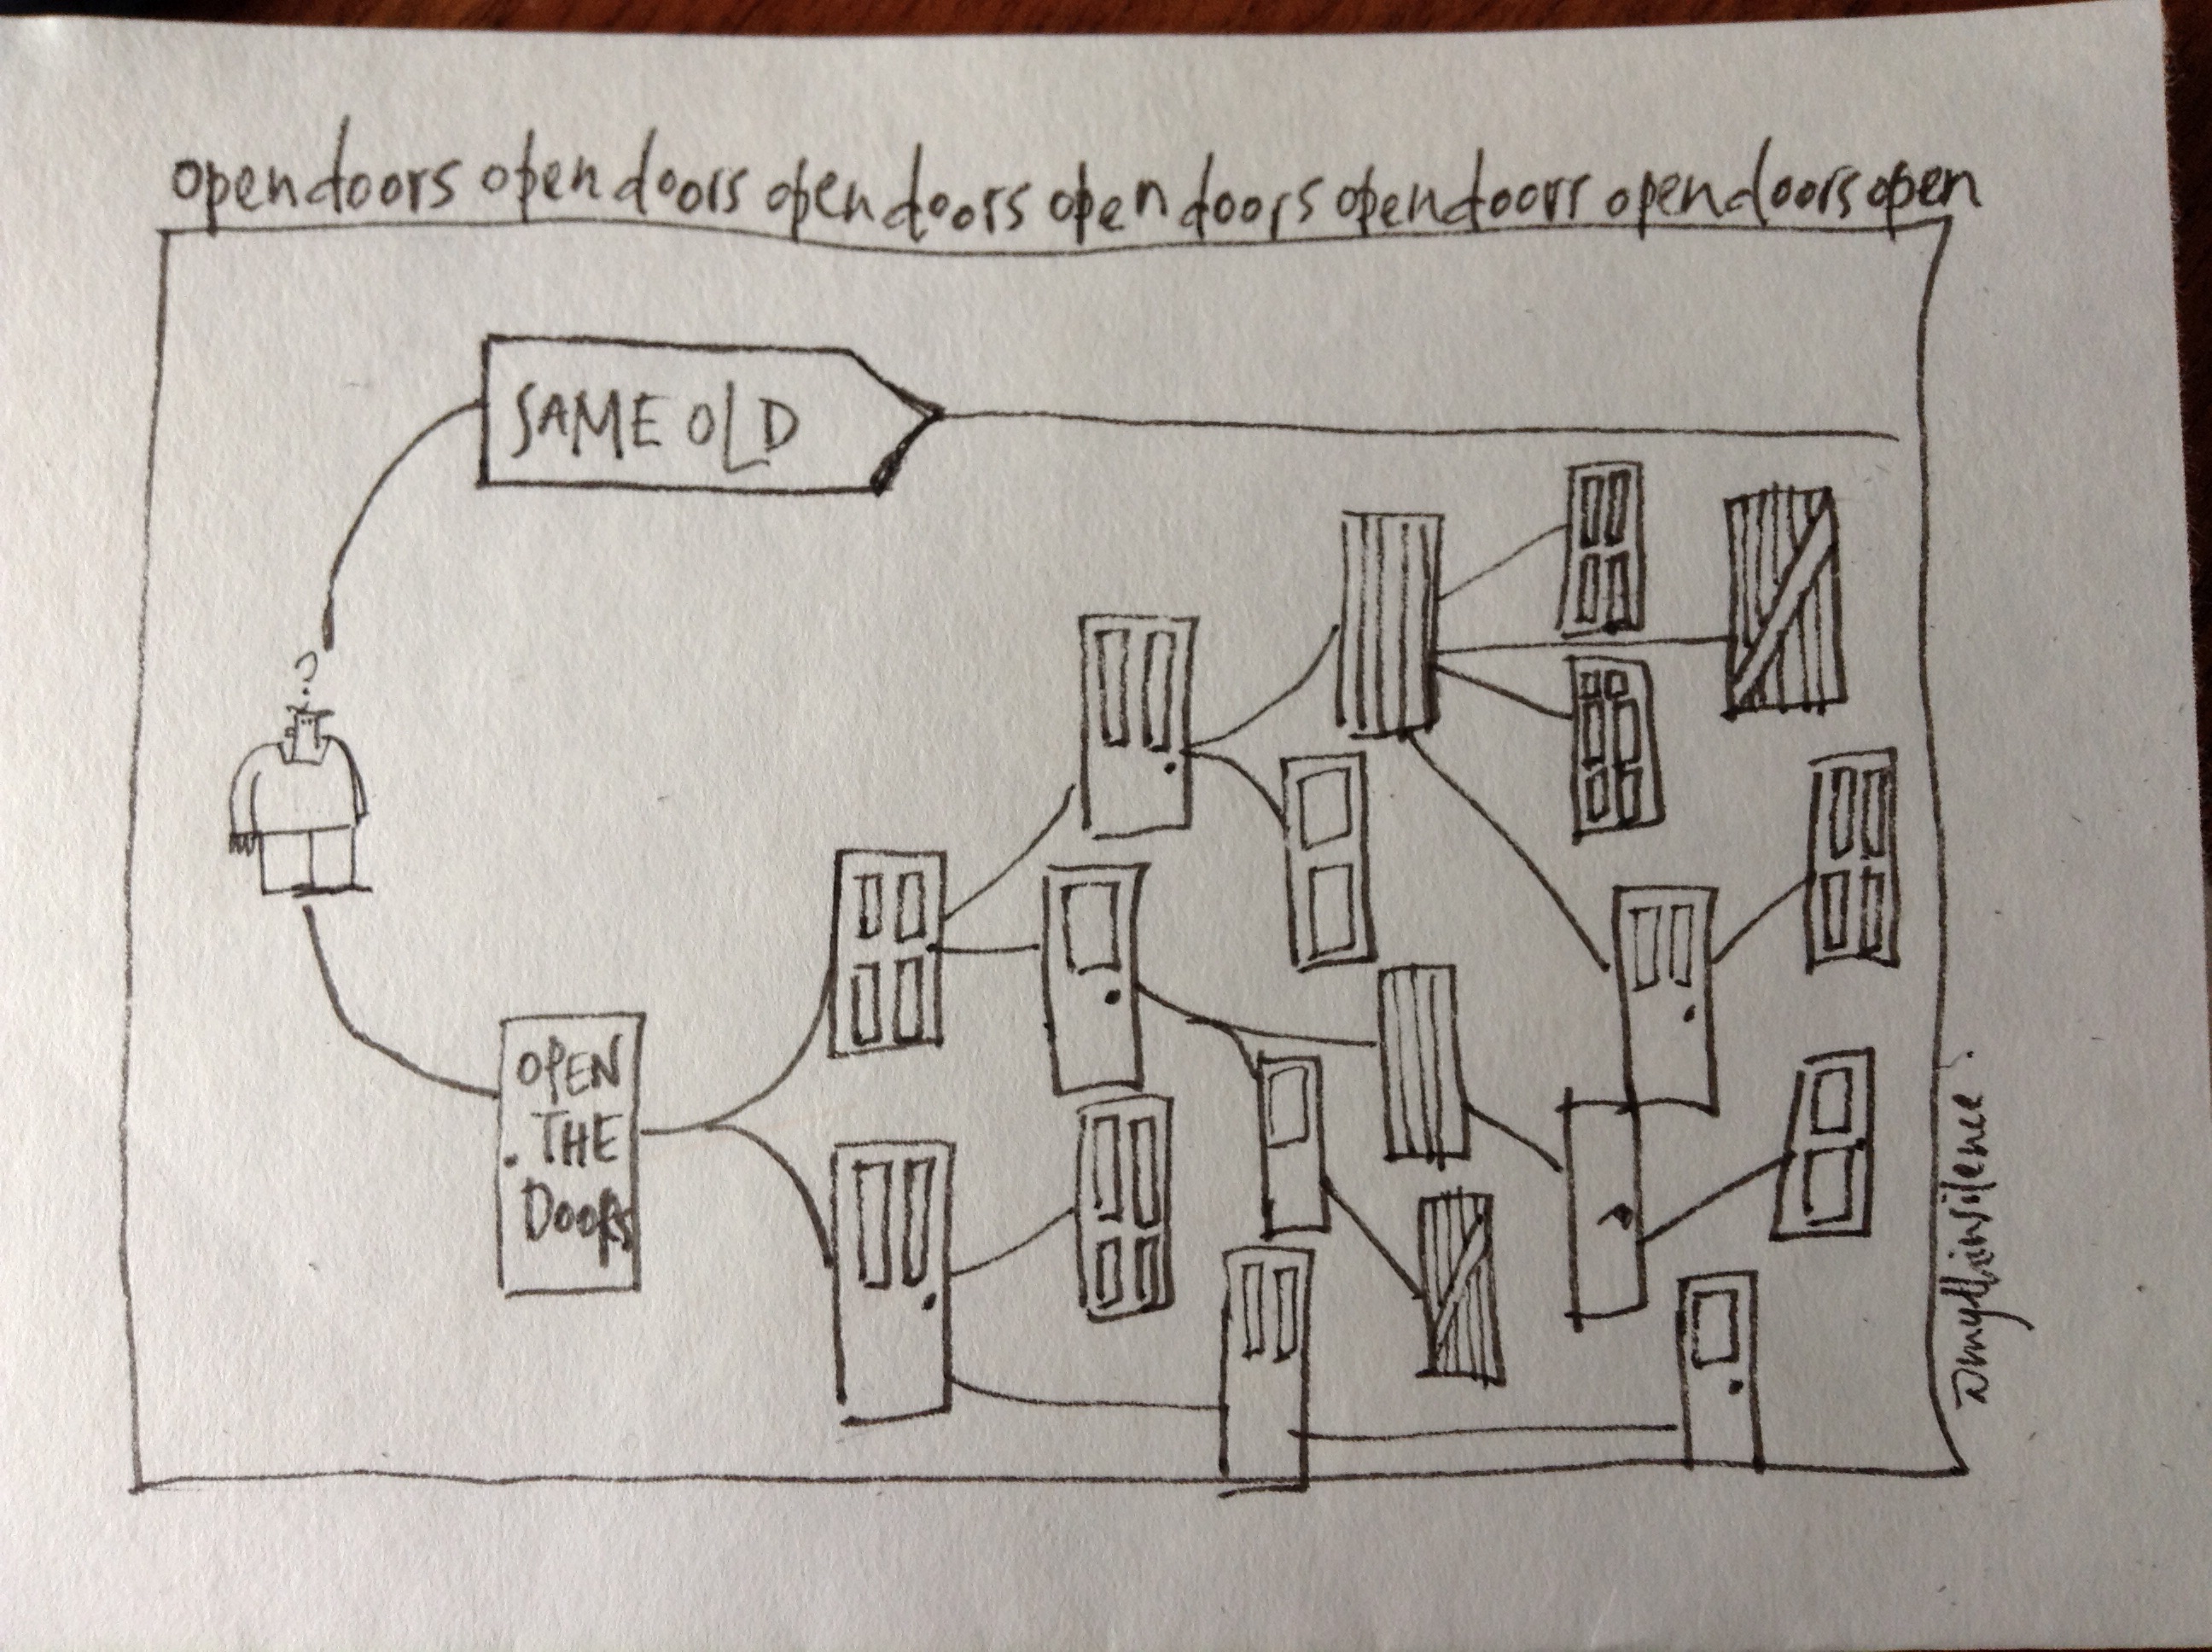 opendoors open doors opendoors open doors opendoors opendoors open
?
SAME OLD
OPEN
THE
DOORS